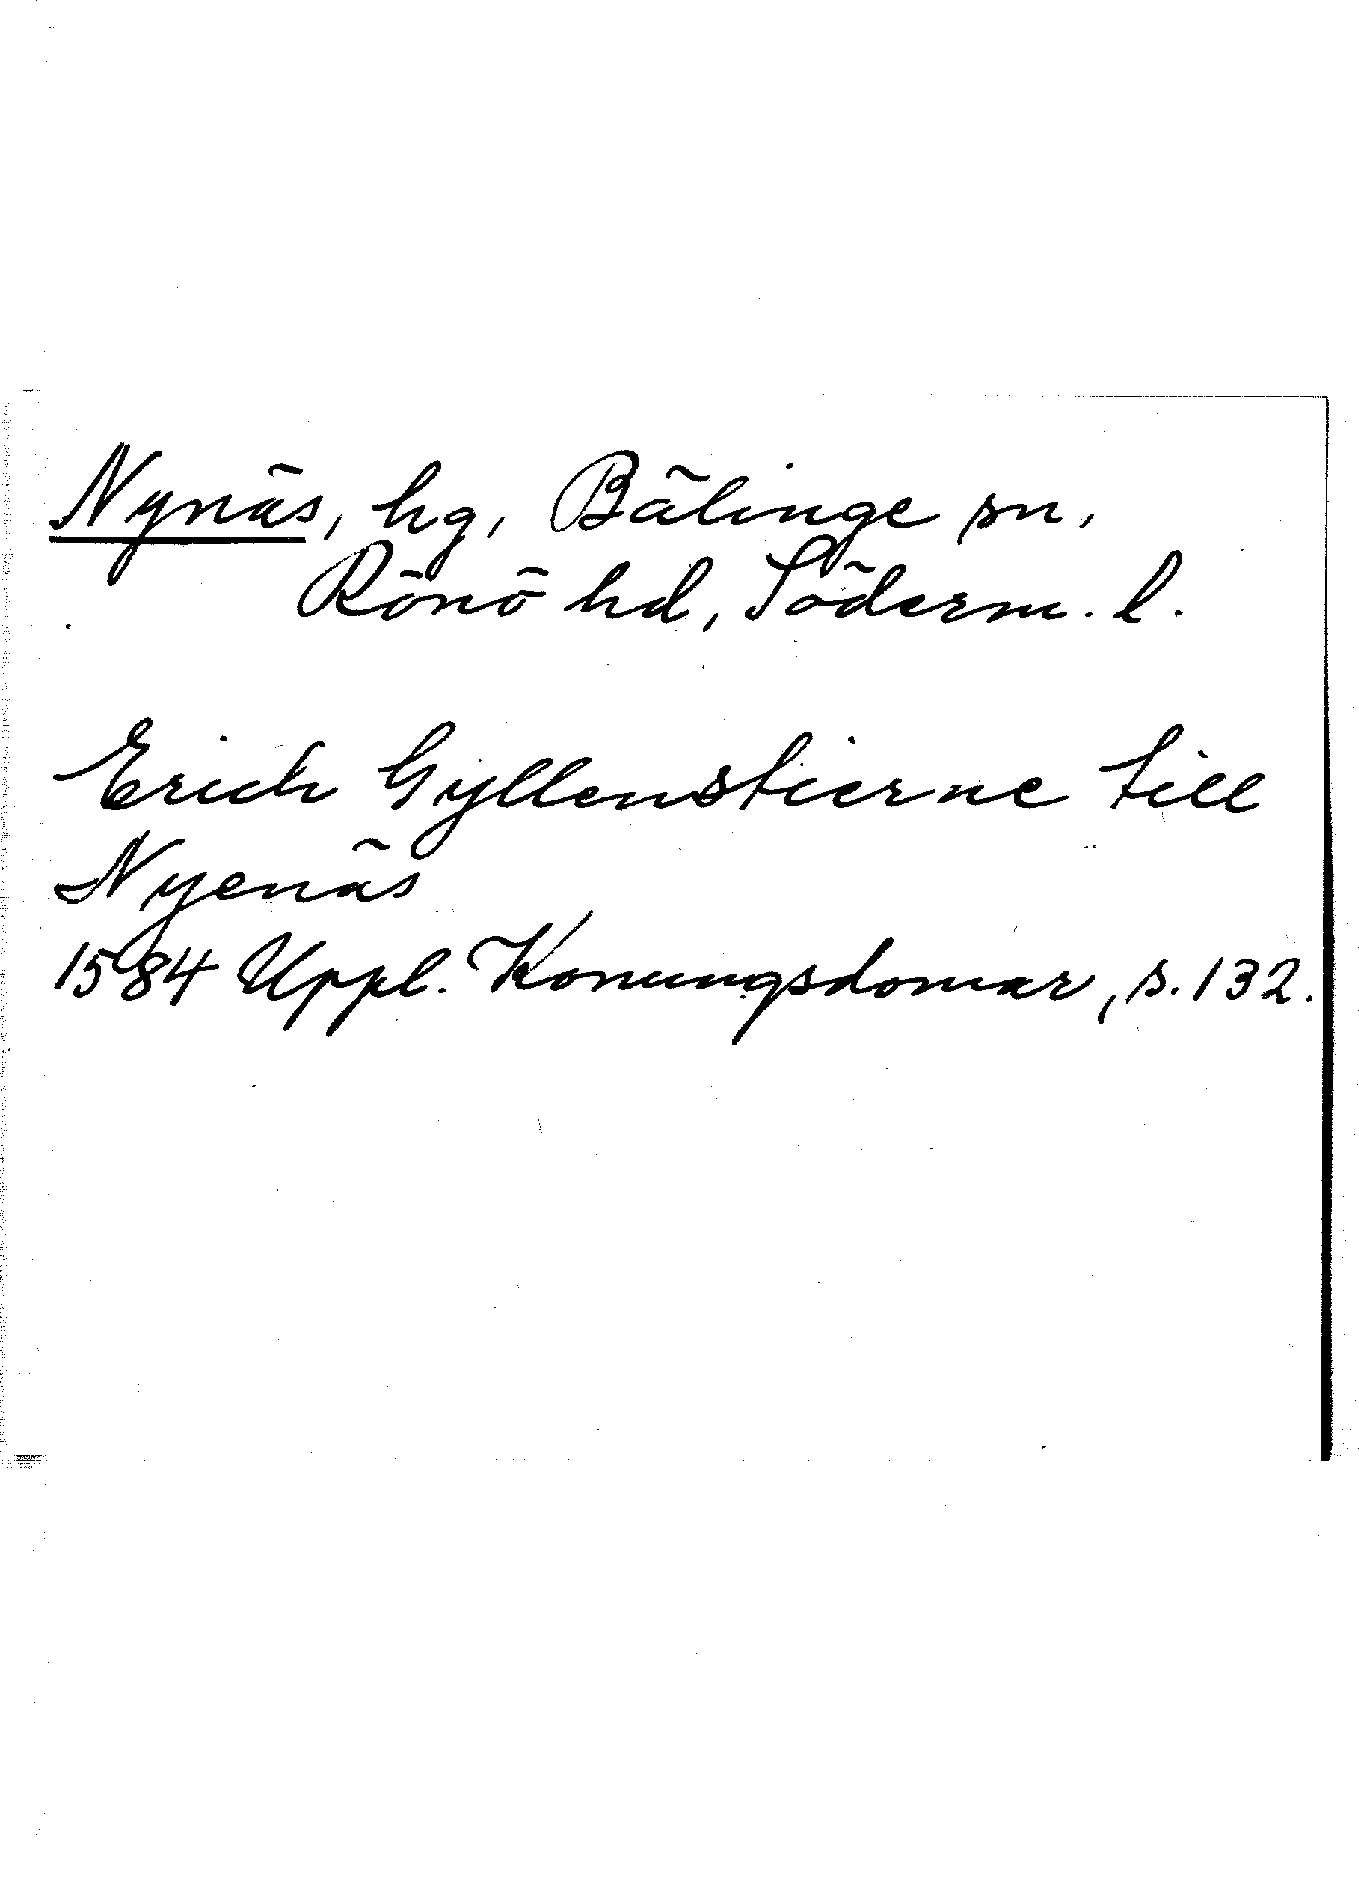 Nynäs, hg, Bälinge sn,
Rönö hd, Söderm. l.
Erich Gyllenstierne till
Nyenäs
1584 Uppl. Konungsdomar, s. 132.